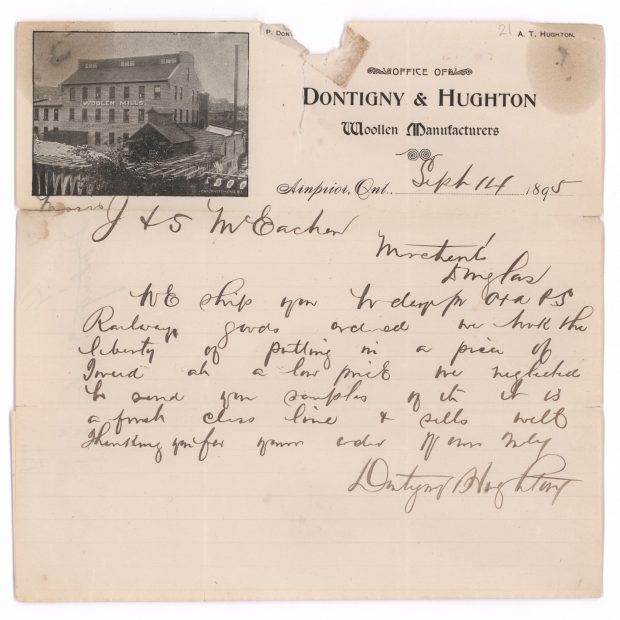 P. DON
21
A. T. HUGHTON.
WOOLEN MILLS
OFFICE OF
DONTIGNY & HUGHTON
Woollen Manufacturers
Arnprior, Ont. Sept 14 1895
Messrs J & S McEachen
Merchants
Douglas
WE ship you to day pr O A & P S
Railway goods ordered we took the
liberty of putting in a piece of
Tweed at a low price we neglected
to send you samples of it it is
a first class line & sells well
Thanking you for your order Yours Truly
Dontigny & Hughton